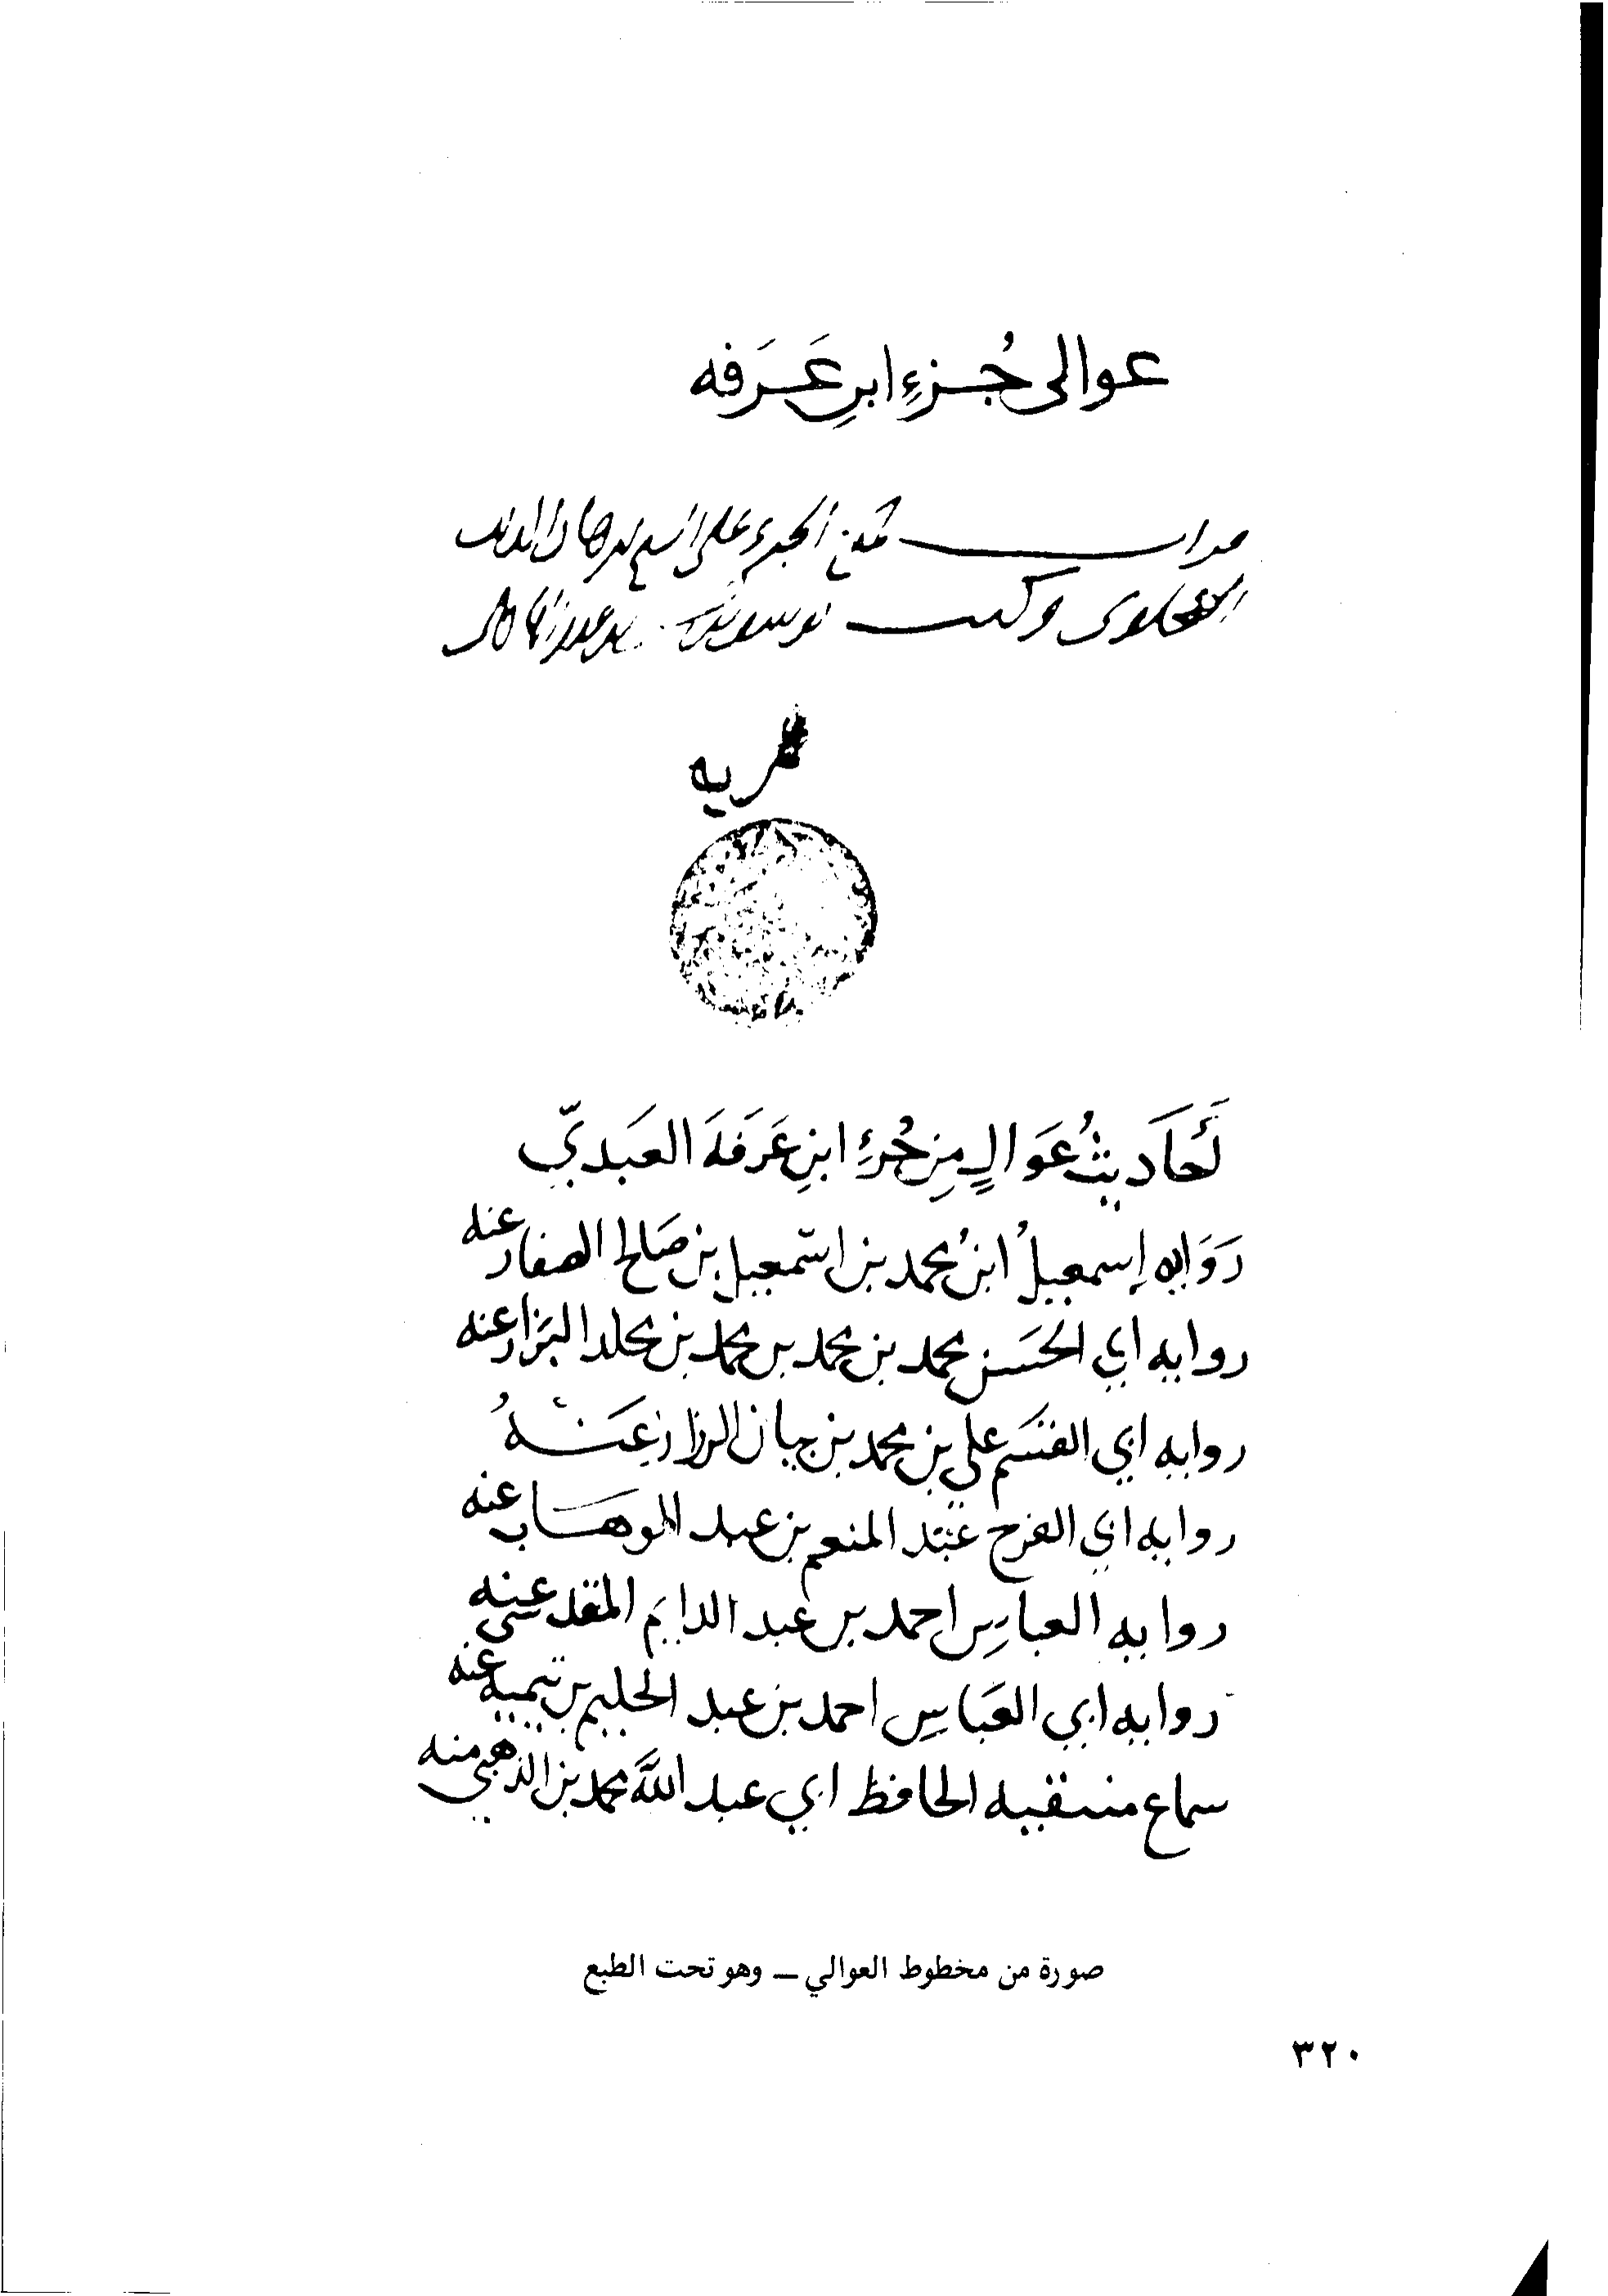 عوالى جُزءِ ابنِ عَرَفه
الجزء على
وكتب
أَحَاديثُ عَوَالٍ مِن جُزءِ ابنِ عَرَفَةَ العَبَديّ
رَوَايه إسمعيلُ ابنُ محمد بن اسمعيل بن صَالح الصفار عنه
روايه ابي الحَسَن محمد بن محمد بن محمد بن مخلد البَزار عنه
روايه ابي القسَم على بن محمد بن بيان الرزاز عَنْهُ
روايه ابي الفرج عَبْد المنعم بن عبد الموهَاب عنه
روايه العباسِ احمد بن عبد الدايم المقدسى عنه
روايه ابي العَبَاسِ احمد بن عبد الحليم بن تيمية عنه
سماع منتقيه الحافظ ابي عبد اللَّه محمد بن الذهبي منه
صورة من مخطوط العوالي ــ وهو تحت الطبع
٣٢٠